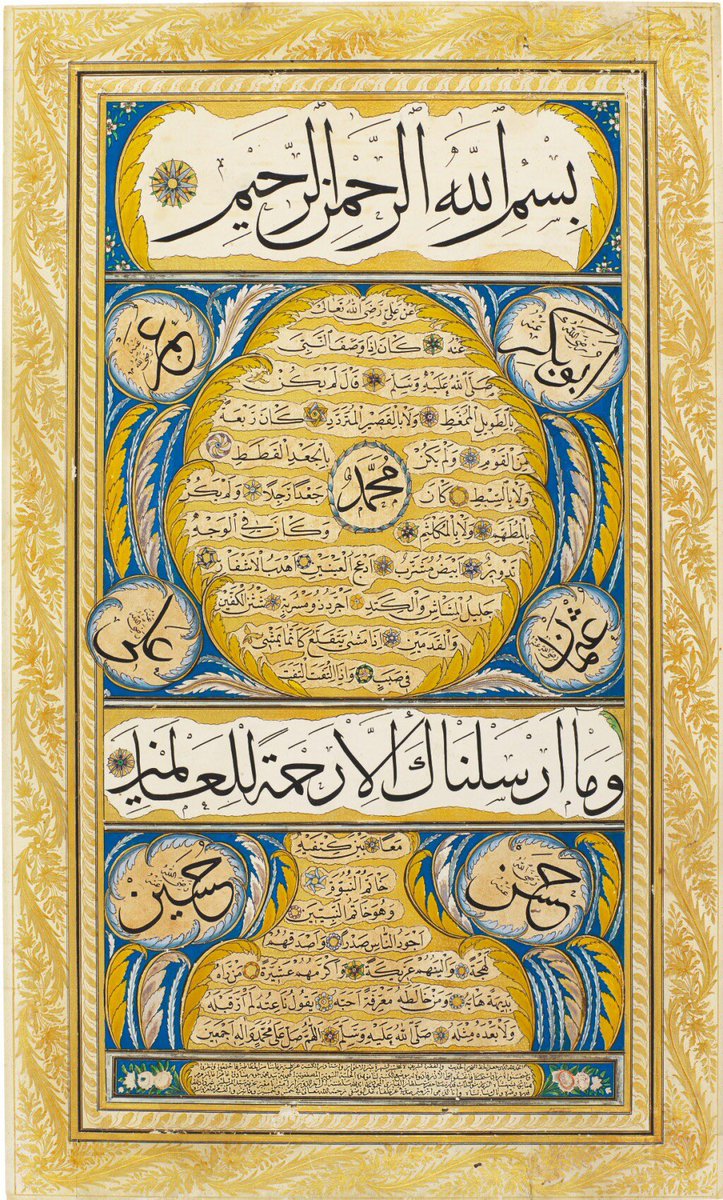 بسم الله الرحمن الرحيم
ابو بكر رضي الله عنه
عمر رضي الله عنه
عن علي رضي الله تعالى
عنه كان اذا وصف النبي
صلى الله عليه وسلم قال لم يكن
بالطويل الممغط ولا بالقصير المتردد كان ربعة
من القوم ولم يكن بالجعد القطط
ولا بالسبط كان جعدا رجلا ولم يكن
محمد
بالمطهم ولا بالمكلثم وكان في الوجه
تدوير ابيض مشرب ادعج العينين اهدب الاشفار
جليل المشاش والكتد اجرد ذو مسربة شثن الكفين
والقدمين اذا مشى يتقلع كانما يمشي
في صبب واذا التفت التفت
عثمان رضي الله عنه
علي
وما ارسلناك الا رحمة للعالمين
حسن رضي الله عنه
حسين رضي الله عنه
معا بين كتفيه
خاتم النبوة
وهو خاتم النبيين
اجود الناس صدرا واصدقهم
لهجة والينهم عريكة واكرمهم عشيرة من راه
بديهة هابه ومن خالطه معرفة احبه يقول ناعته لم ار قبله
ولا بعده مثله صلى الله عليه وسلم اللهم صل على محمد واله اجمعين